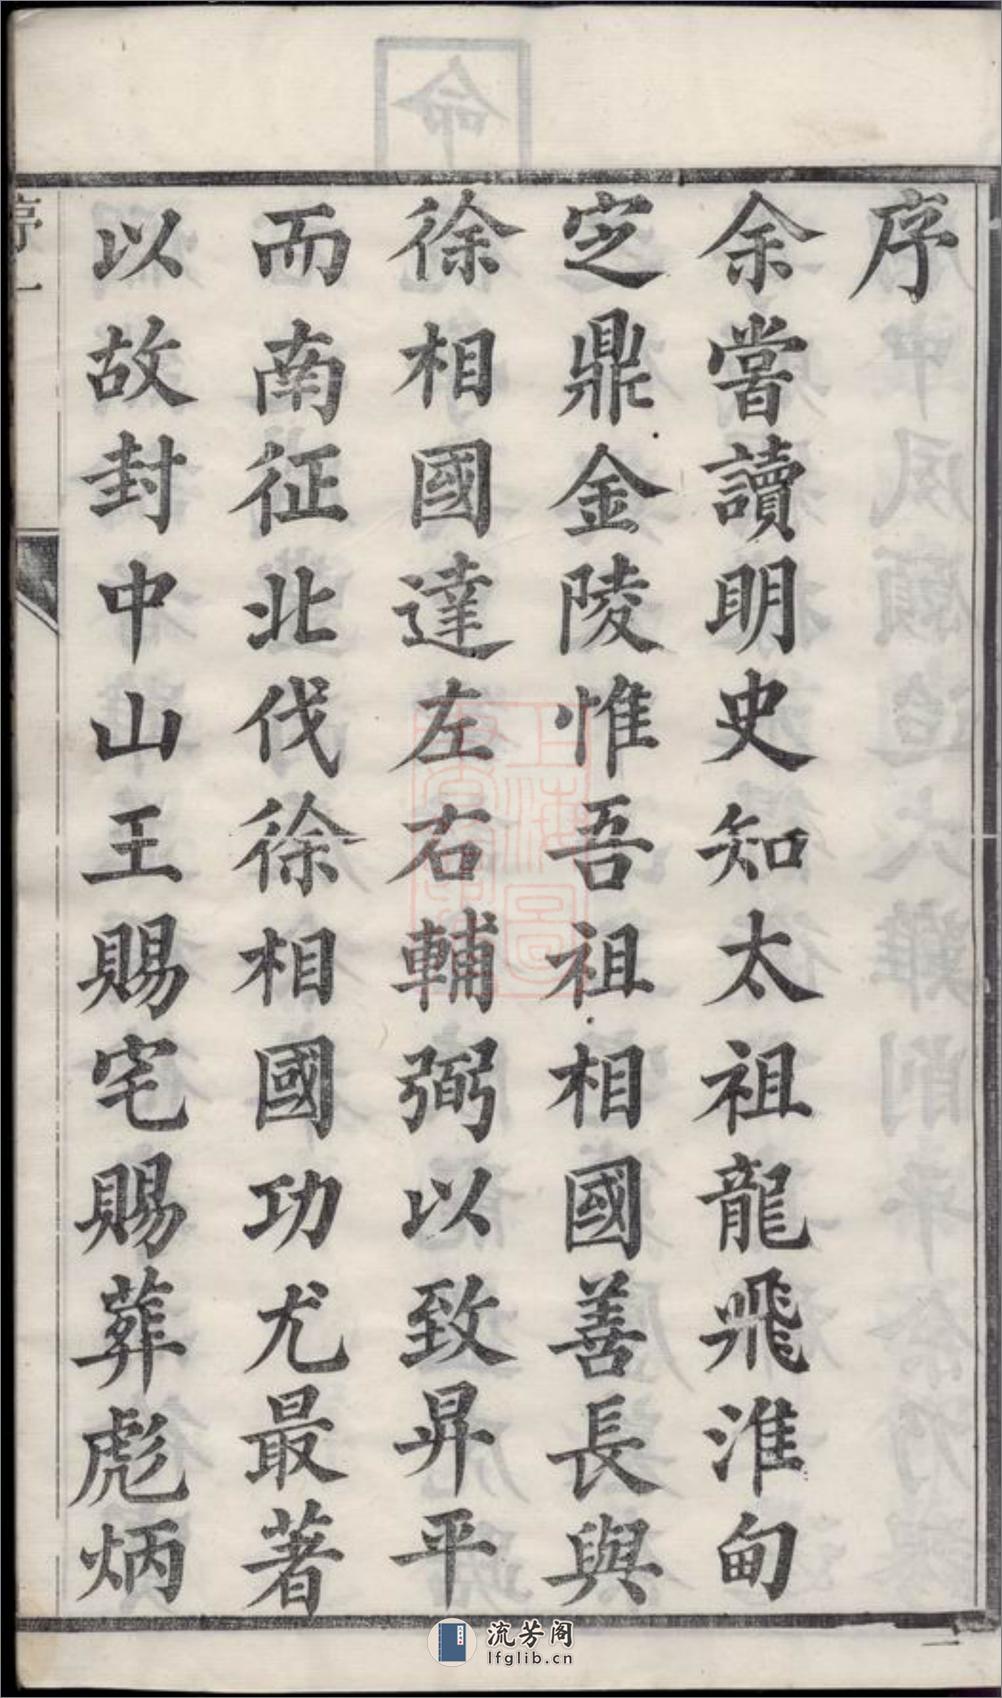 序
余嘗讀明史知太祖龍飛淮甸
定鼎金陵惟吾祖相國善長與
徐相國達左右輔弼以致昇平
而南征北伐徐相國功尤最著
以故封中山王賜宅賜葬彪炳
流芳阁
lfglib.cn